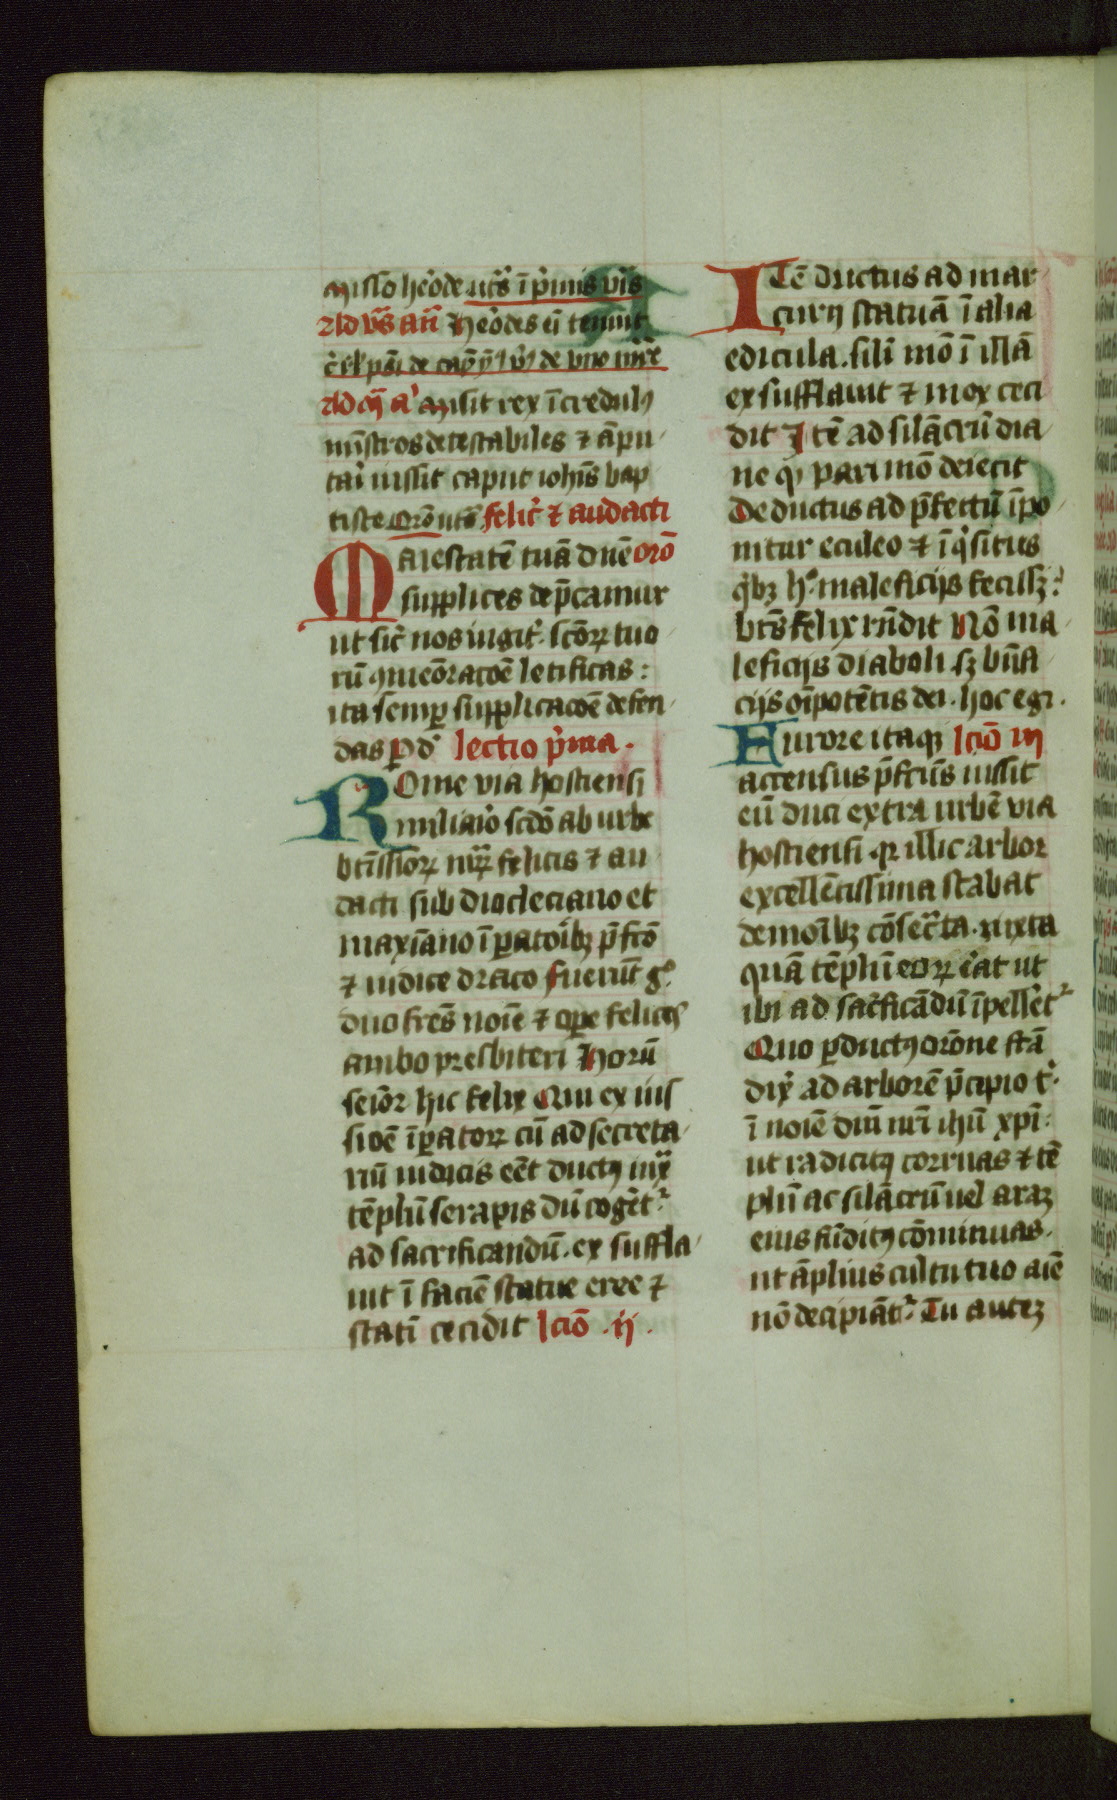 misso heꝛode ut̄s ī p̄mis vīs
ad vās an̄ herōdes eī tenuit
ad mā a misit rex īcredulꝰ
mīstros detestabiles ⁊ āpu
tari iussit caput iohīs bap
tiste Orō ut felic̄ ⁊ audacti
Maiestatē tuā dn̄e orō
supplices dep̄camur
ut sic̄ nos iugit̄ scōꝝ tuo
rū ꝯmeōracōe letificas:
ita semꝑ supplicacōe defen
das ꝑ d lectio p̄ma.
Rome via hostiensi
miliario scdō ab urbe
btīssiōꝝ mrꝝ felicis ⁊ au
dacti sub diocleciano et
maxīano īꝑatoibꝫ p̄fcō
⁊ iudice draco fuerūt gͦ
duo frēs noīe ⁊ oꝑe felices
ambo presbiteri Horū
seiōr hic felix Qui ex ius
siōe īꝑatoꝝ cū ad secreta
riū iudicis eēt ductꝰ iux
tēplū serapis dū coget᷑
ad sacrificandū. ex suffla
uit ī faciē statue eree ⁊
statī cecidit lcīo .ij.
Itē ductus ad mar
curij statuā ī alia
edicula. silī mō ī illā
exsufflauit ⁊ mox ceci
dit Itē ad silācrū dia
ne qꝫ pari mō deiecit
Deductus ad p̄fectū īpo
nitur eculeo ⁊ īq̄situs
qͥbꝫ hͦ maleficijs fecissꝫ.
btūs felix rn̄dit Nō ma
leficijs diaboli sꝫ bn̄fi
cijs oīpotētis dei. hoc egi.
Furore itaqꝫ lcīo iij
accensus p̄fctūs iussit
eū duci extra urbē via
hostiensi qꝛ illic arbor
excellētissima stabat
demoībꝫ cōsecͬta. iuxta
quā tēplū eoꝝ erat ut
ibi ad sac̄ficādū īpellet᷑
Quo ꝑductꝰ orōne fcā
dix̄ ad arborē p̄cipio t.
ī noīe dnī nrī ihū xp̄i.
ut radicitꝰ corruas ⁊ tē
plū ac silācrū uel araꝫ
eius fūditꝰ cōminuas.
ut āplius cultu tuo aīe
nō decipiāt᷑ Tu auteꝫ